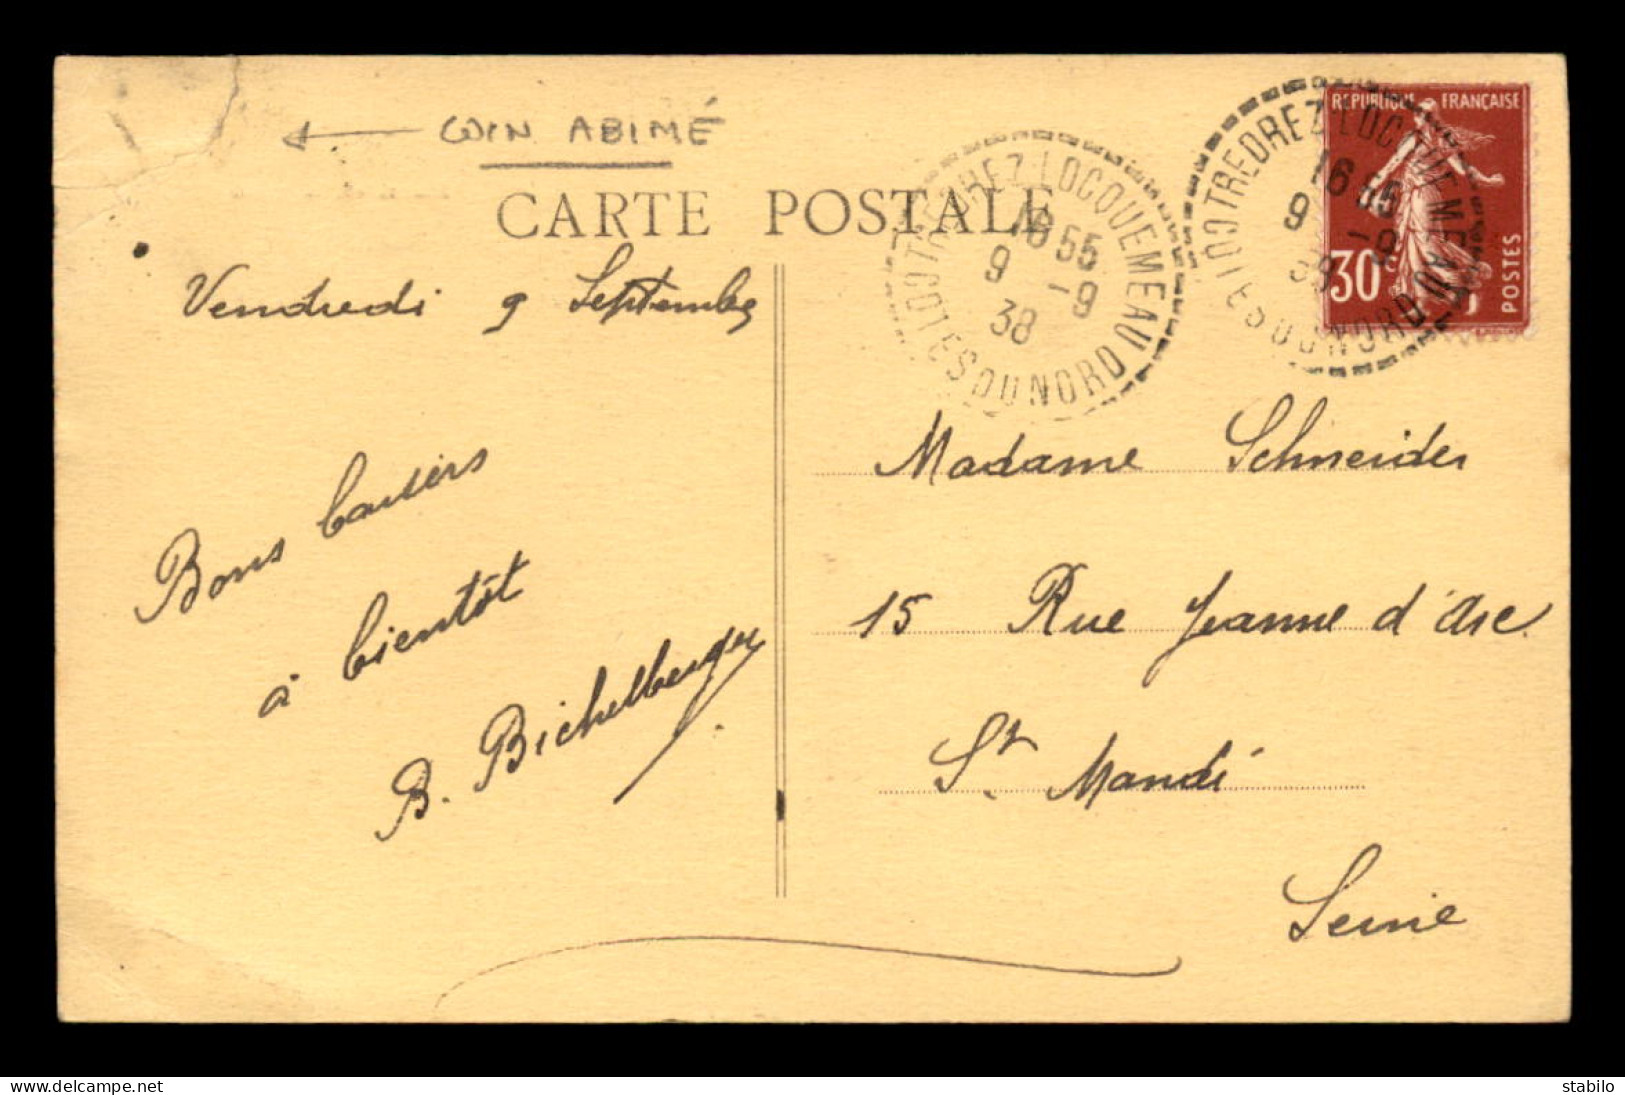 COIN ABIMÉ
CARTE POSTALE
Vendredi 9 Septembre
Bons baisers
à bientôt
B. Bichelberger
TREDREZ LOCQUEMEAU
COTES DU NORD
16 55
9 -9
38
TREDREZ LOCQUEMEAU
COTES DU NORD
16 55
9 -9
38
REPUBLIQUE FRANÇAISE
30 c
POSTES
Madame Schneider
15 Rue Jeanne d'Arc
St. Mandé
Seine
Delcampe.net
stabilo